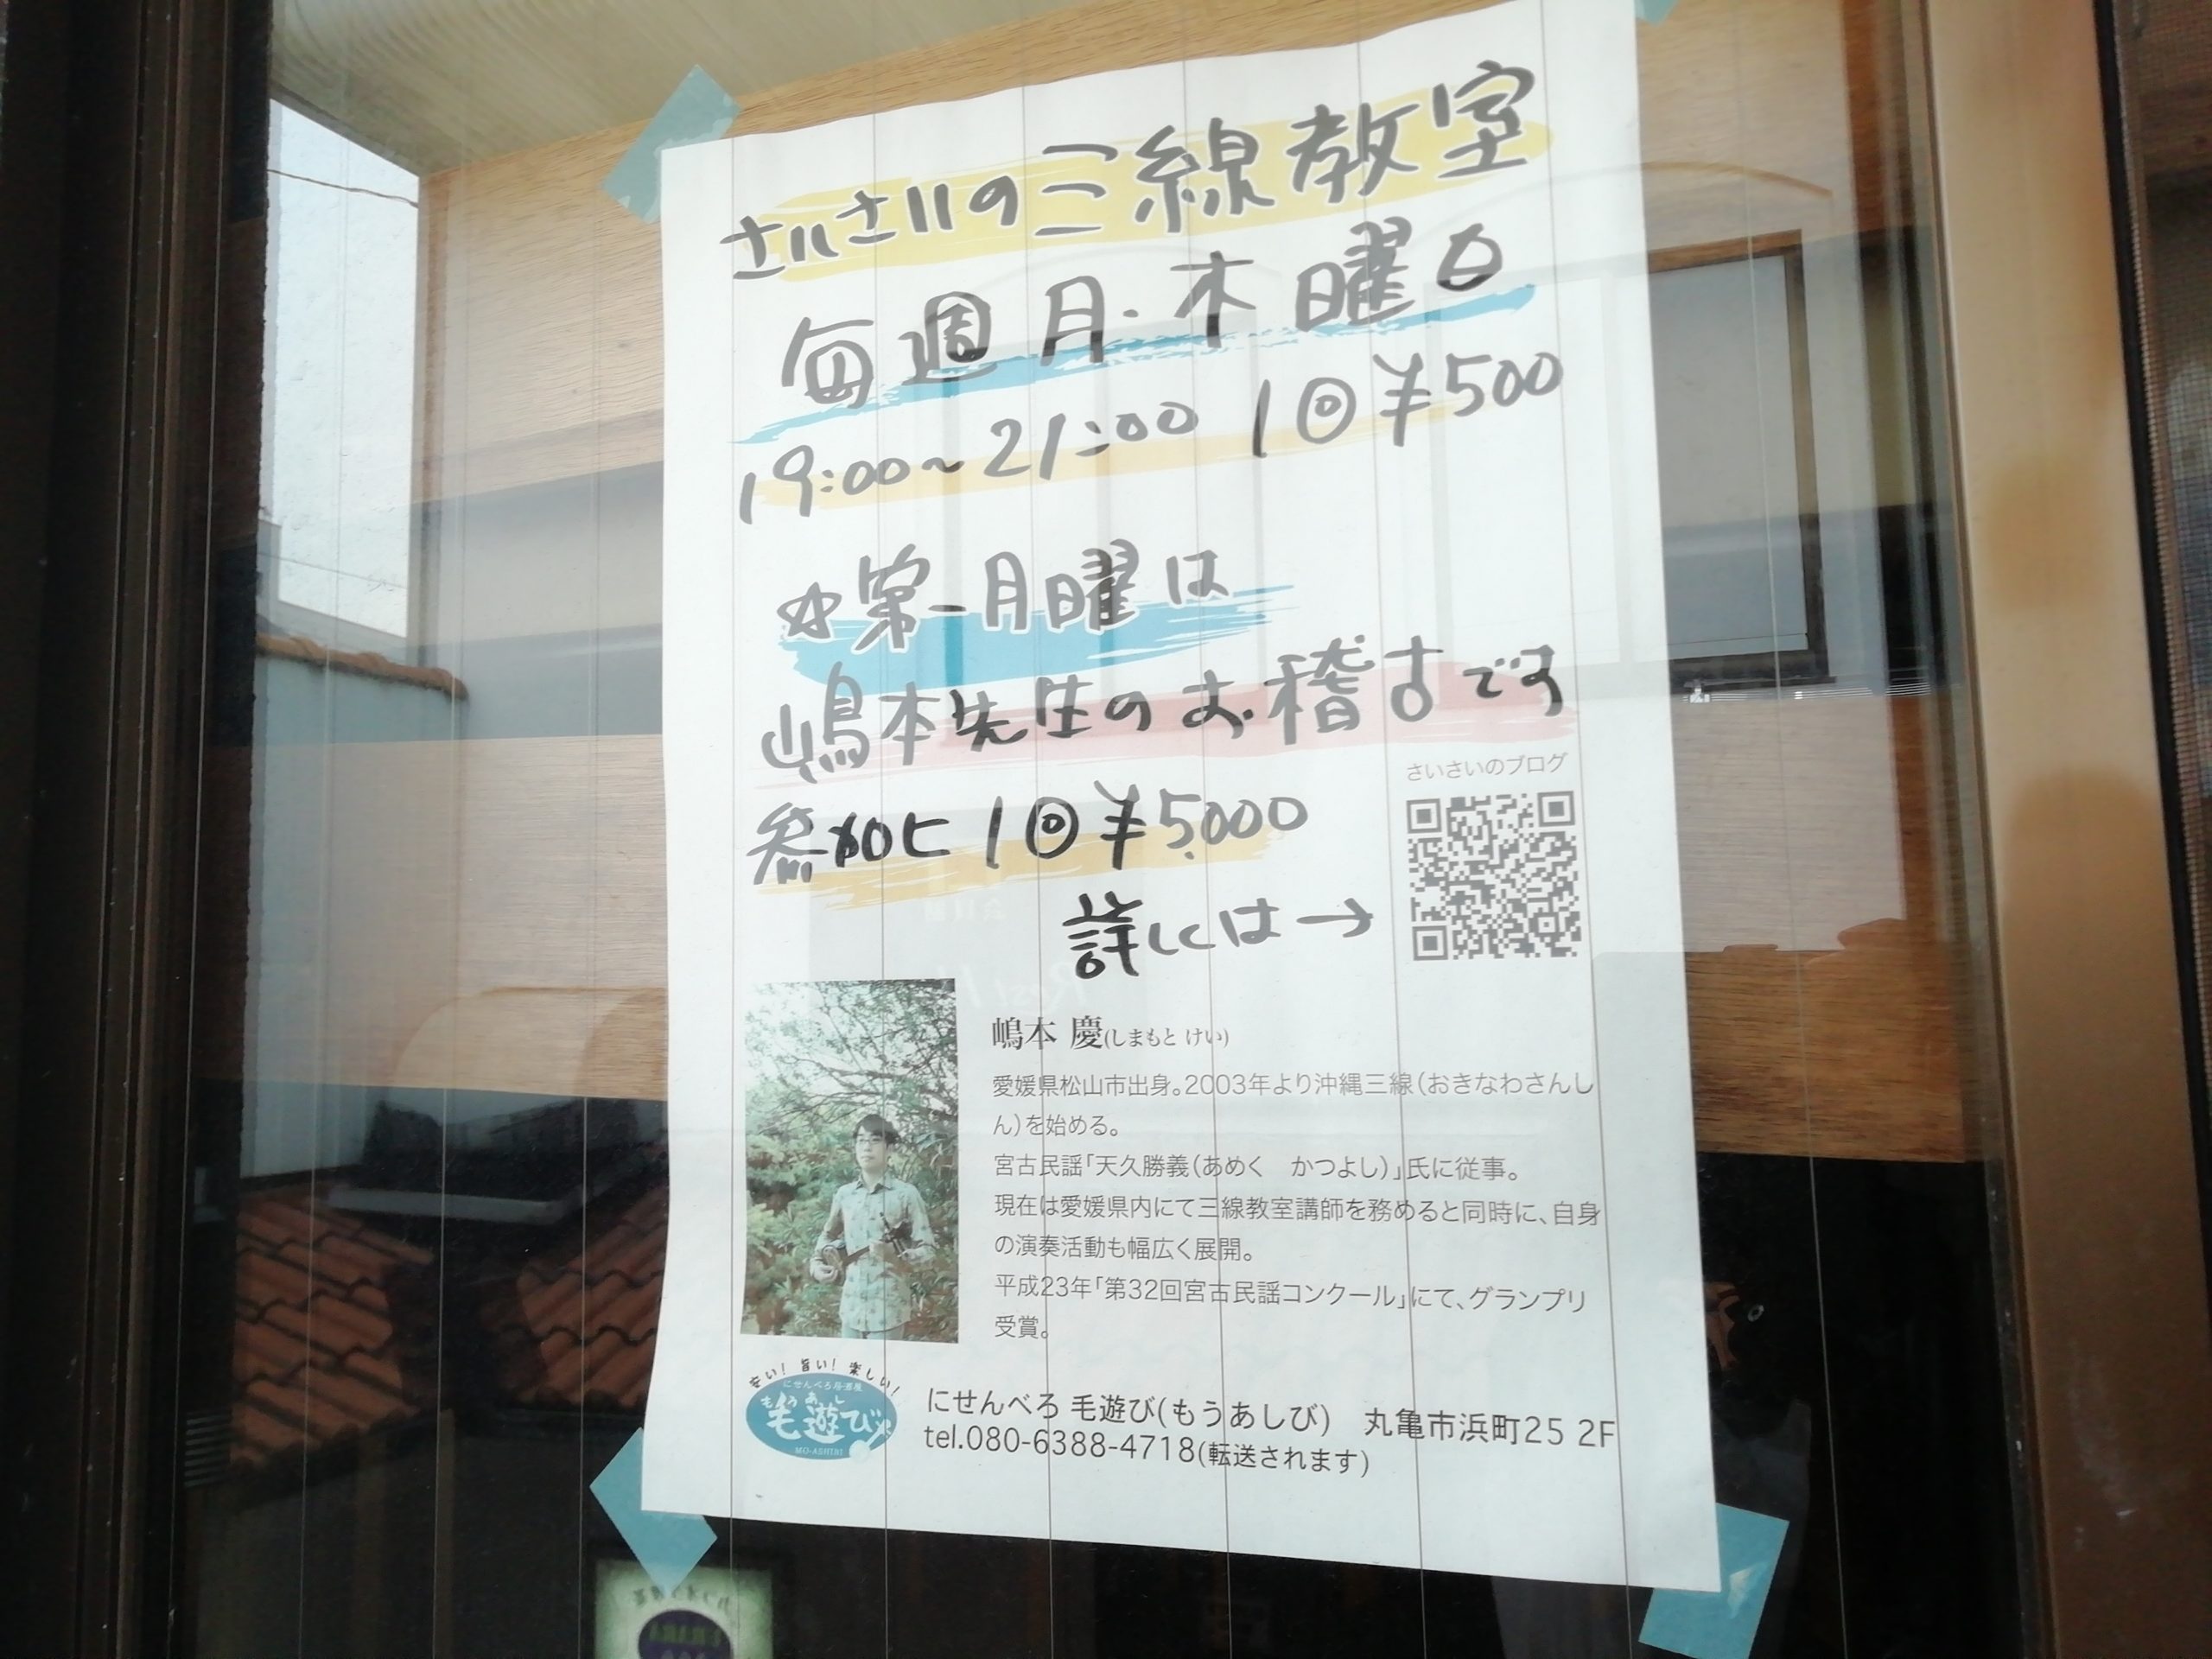 さいさいの三線教室
毎週月・木曜日
19:00~21:00 1回¥500
☆第一月曜は
嶋本先生のお稽古です
さいさいのブログ
参加ヒ 1回¥5000
詳しくは→
嶋本 慶(しまもと けい)
愛媛県松山市出身。2003年より沖縄三線(おきなわさんし
ん)を始める。
宮古民謡「天久勝義(あめく かつよし)」氏に従事。
現在は愛媛県内にて三線教室講師を務めると同時に、自身
の演奏活動も幅広く展開。
平成23年「第32回宮古民謡コンクール」にて、グランプリ
受賞。
安い!旨い!楽しい!
にせんべろ居酒屋
もうあしび
毛遊び
MO-ASHIBI
にせんべろ 毛遊び(もうあしび) 丸亀市浜町25 2F
tel.080-6388-4718(転送されます)